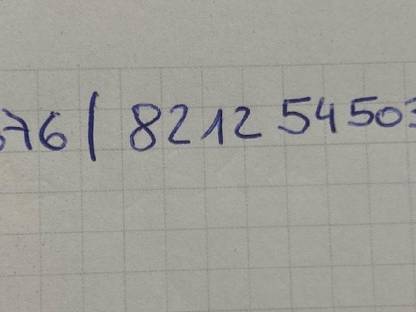 76 | 82 12 54 50